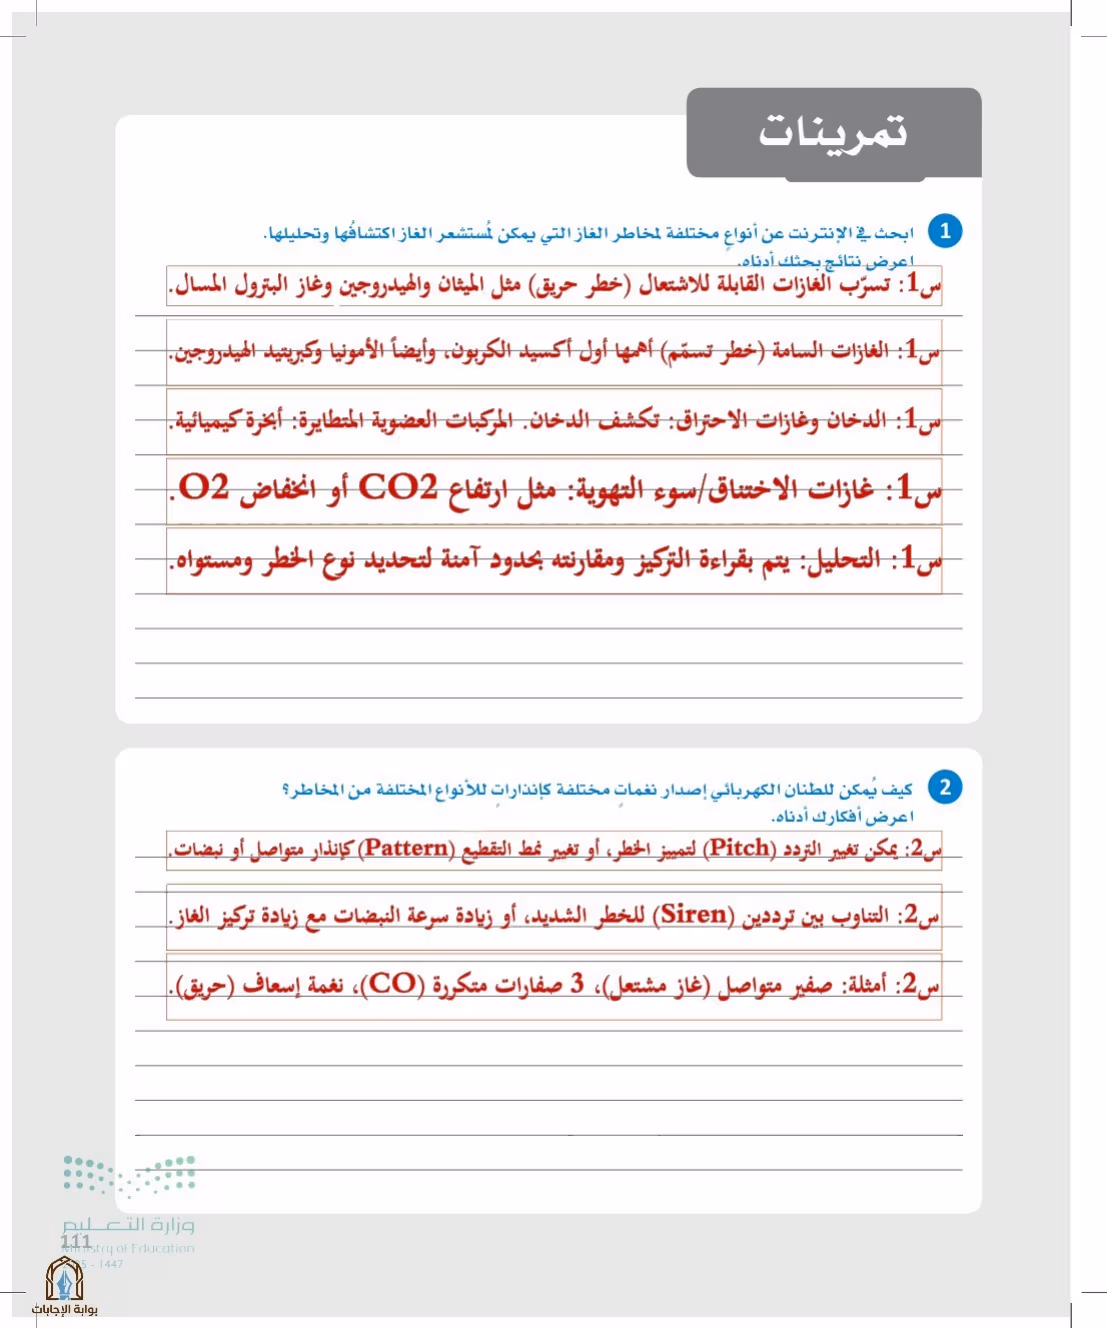 تمرينات
1 ابحث في الإنترنت عن أنواعٍ مختلفة لمخاطر الغاز التي يمكن لمُستشعر الغاز اكتشافُها وتحليلها.
اعرض نتائج بحثك أدناه.
س1: تسرّب الغازات القابلة للاشتعال (خطر حريق) مثل الميثان والهيدروجين وغاز البترول المسال.
س1: الغازات السامة (خطر تسمّم) أهمها أول أكسيد الكربون، وأيضاً الأمونيا وكبريتيد الهيدروجين.
س1: الدخان وغازات الاحتراق: تكشف الدخان. المركبات العضوية المتطايرة: أبخرة كيميائية.
س1: غازات الاختناق/سوء التهوية: مثل ارتفاع CO2 أو انخفاض O2.
س1: التحليل: يتم بقراءة التركيز ومقارنته بحدود آمنة لتحديد نوع الخطر ومستواه.
2 كيف يُمكن للطنان الكهربائي إصدار نغماتٍ مختلفة كإنذاراتٍ للأنواع المختلفة من المخاطر؟
اعرض أفكارك أدناه.
س2: يمكن تغيير التردد (Pitch) لتمييز الخطر، أو تغيير نمط التقطيع (Pattern) كإنذار متواصل أو نبضات.
س2: التناوب بين ترددين (Siren) للخطر الشديد، أو زيادة سرعة النبضات مع زيادة تركيز الغاز.
س2: أمثلة: صفير متواصل (غاز مشتعل)، 3 صفارات متكررة (CO)، نغمة إسعاف (حريق).
وزارة التعليم
111
Ministry of Education
- 1447
بوابة الإجابات